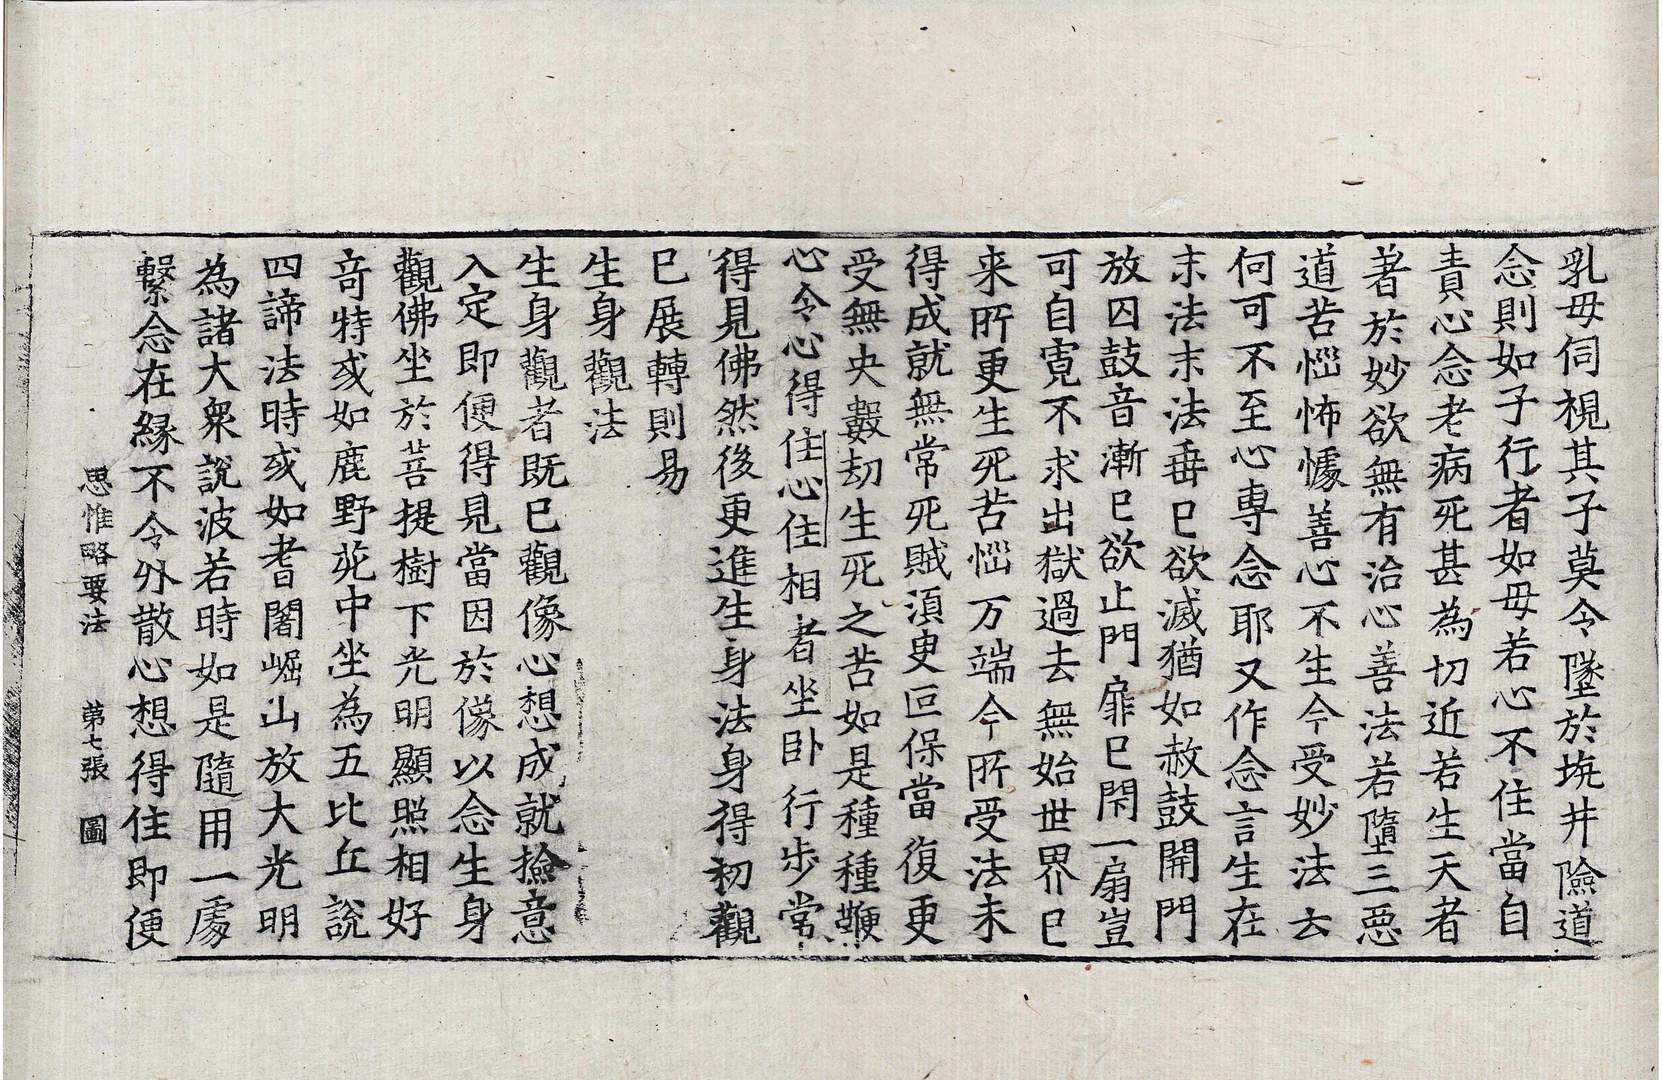 乳母伺視其子莫令墜於坑井險道
念則如子行者如母若心不住當自
責心念老病死甚為切近若生天者
著於妙欲無有治心善法若墮三惡
道苦惱怖懅善心不生今受妙法云
何可不至心專念耶又作念言生在
末法末法垂已欲滅猶如赦鼓開門
放囚鼓音漸已欲止門扉已閇一扇豈
可自寬不求出獄過去無始世界已
来所更生死苦惱万端今所受法未
得成就無常死賊湏臾叵保當復更
受無央數劫生死之苦如是種種鞭
心令心得住心住相者坐卧行步常
得見佛然後更進生身法身得初觀
已展轉則易
生身觀法
生身觀者既已觀像心想成就撿意
入定即便得見當因於像以念生身
觀佛坐於菩提樹下光明顯照相好
奇特或如鹿野苑中坐為五比丘說
四諦法時或如耆闍崛山放大光明
為諸大衆說波若時如是隨用一處
繫念在緣不令外散心想得住即便
思惟略要法 第七張 圖